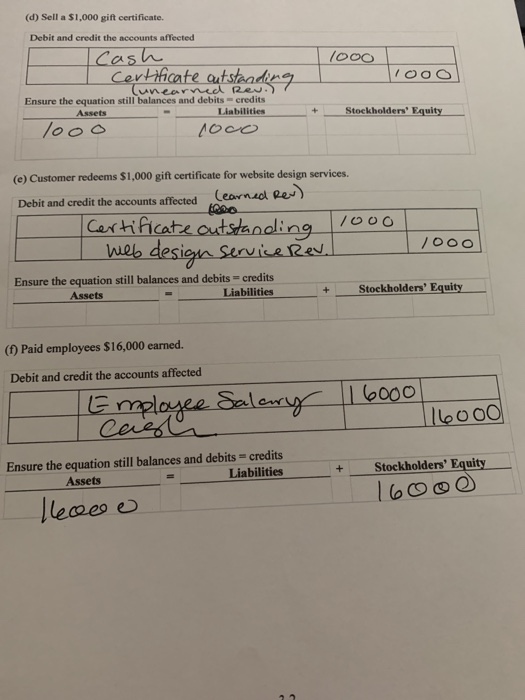 (d) Sell a $1,000 gift certificate.
Debit and credit the accounts affected
Cash 1000
Certificate outstanding 1000
(unearned Rev.)
Ensure the equation still balances and debits = credits
Assets = Liabilities + Stockholders' Equity
1000 1000
(e) Customer redeems $1,000 gift certificate for website design services.
(earned Rev)
Debit and credit the accounts affected
Certificate outstanding 1000
web design service Rev. 1000
Ensure the equation still balances and debits = credits
Assets = Liabilities + Stockholders' Equity
(f) Paid employees $16,000 earned.
Debit and credit the accounts affected
Employee Salary 16000
Cash 16000
Ensure the equation still balances and debits = credits
Assets = Liabilities + Stockholders' Equity
16000